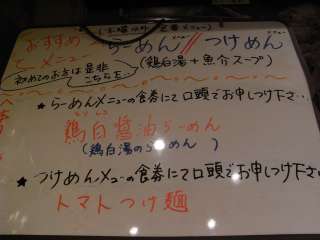 (木曜以外 定番メニュー)
おすすめ らーめん // つけめん
メニュー (鶏白湯+魚介スープ)
初めての方は是非
こちらを
★らーめんメニューの食券にて口頭でお申しつけ下さい
鶏白醤油らーめん
(鶏白湯のらーめん )
★つけめんメニューの食券にて口頭でお申しつけ下さ
トマトつけ麺